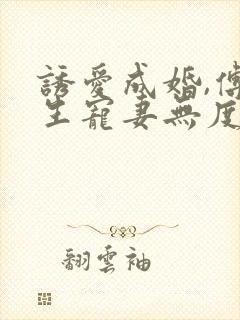 誘愛成婚,傅
生寵妻無度
翻雲袖